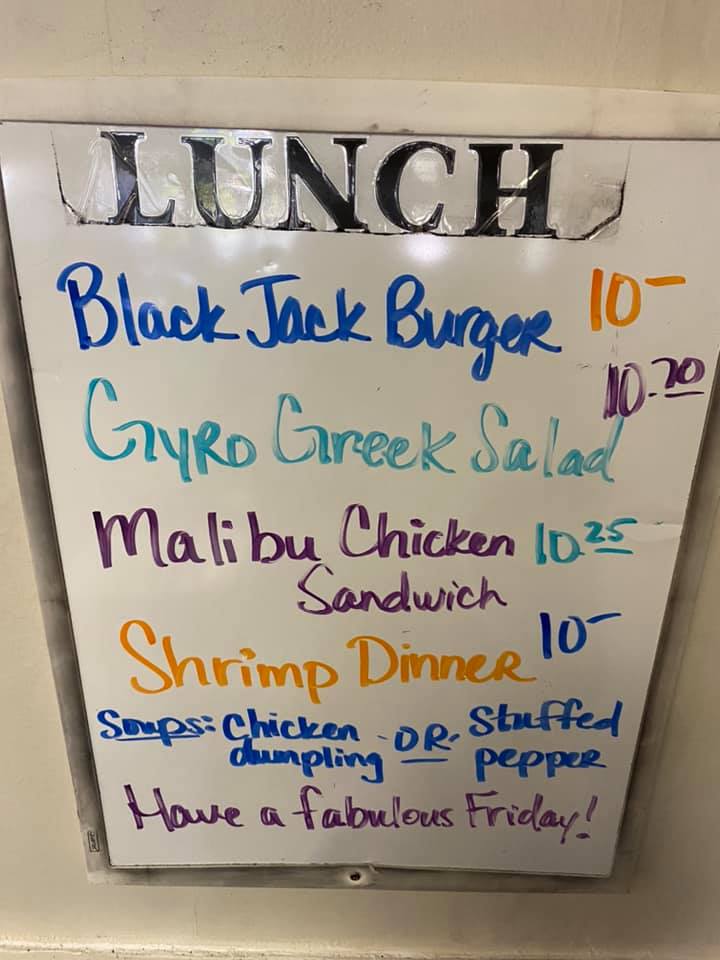 LUNCH
Black Jack Burger 10-
10.20
Gyro Greek Salad
Malibu Chicken 10.25
Sandwich
Shrimp Dinner 10-
Soups: Chicken - OR - Stuffed
dumpling pepper
Have a fabulous Friday!